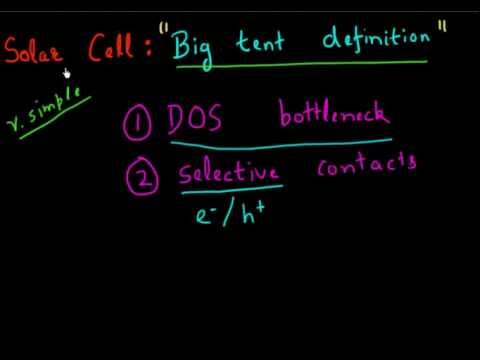 Solar Cell : "Big tent definition"
v. simple
① DOS bottleneck
② selective contacts
e⁻/h⁺